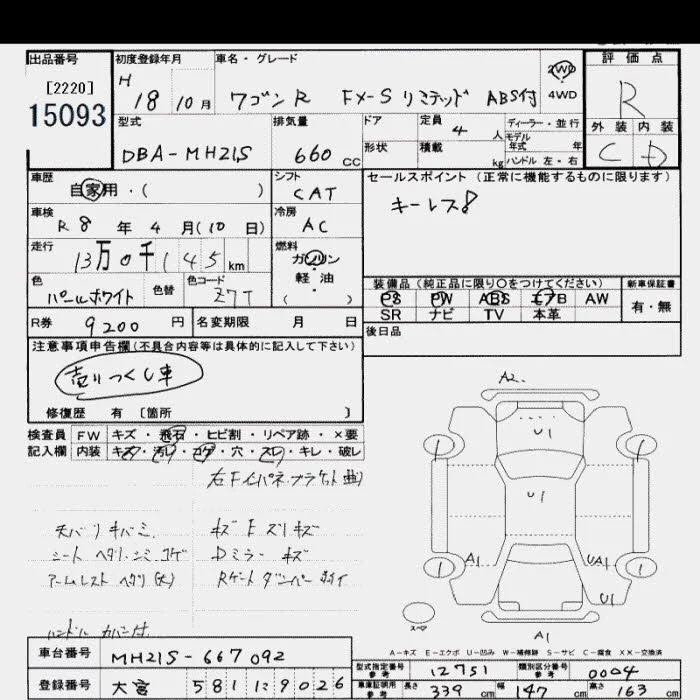 出品番号 初度登録年月 車名・グレード 評価点
[2220] H 2WD
15093 18年10月 ワゴンR FX-S リミテッド ABS付 4WD R
型式 排気量 ドア 定員 4人 ディーラー・並行 外装 内装
モデル年式 年
DBA-MH21S 660 CC 形状 積載 kg ハンドル 左・右 C D
車歴 シフト セールスポイント (正常に機能するものに限ります)
自家用・( ) CAT キーレス
車検 冷房
R8年4月(10日) AC
走行 燃料
13万0千145km ガソリン
色 色替 色コード 軽・油 装備品 (純正品に限り○をつけてください) 新車保証書
パールホワイト Z7T ( ) PS PW ABS エアB AW 有・無
R券 9200円 名変期限 月 日 SR ナビ TV 本革
後日品
注意事項申告欄(不具合内容等は具体的に記入して下さい)
売りつくし車
修復歴 有 [箇所 ]
検査員 FW キズ・飛石・ヒビ割・リペア跡・×要
記入欄 内装 キズ・汚レ・コゲ・穴・スレ・キレ・破レ
右Fインパネブラケット曲
天バリ キバミ キズ
シート ヘタリ シミ コゲ Dミラー キズ
アームレスト Rゲートダンパー
ハンドル カバー付
A2
U1
1 1
U1
A1 UA1
1 1
U1
スペア
A1
A-キズ E-エクボ U-凹み W-補修跡 S-サビ C-腐食 XX-交換済
車台番号 MH21S-667092 型式指定番号 参考 12751 類別区分番号 参考 0004
登録番号 大宮 581 い 9026 車庫証明用 参考 長さ 339 cm 幅 147 cm 高さ 163 cm